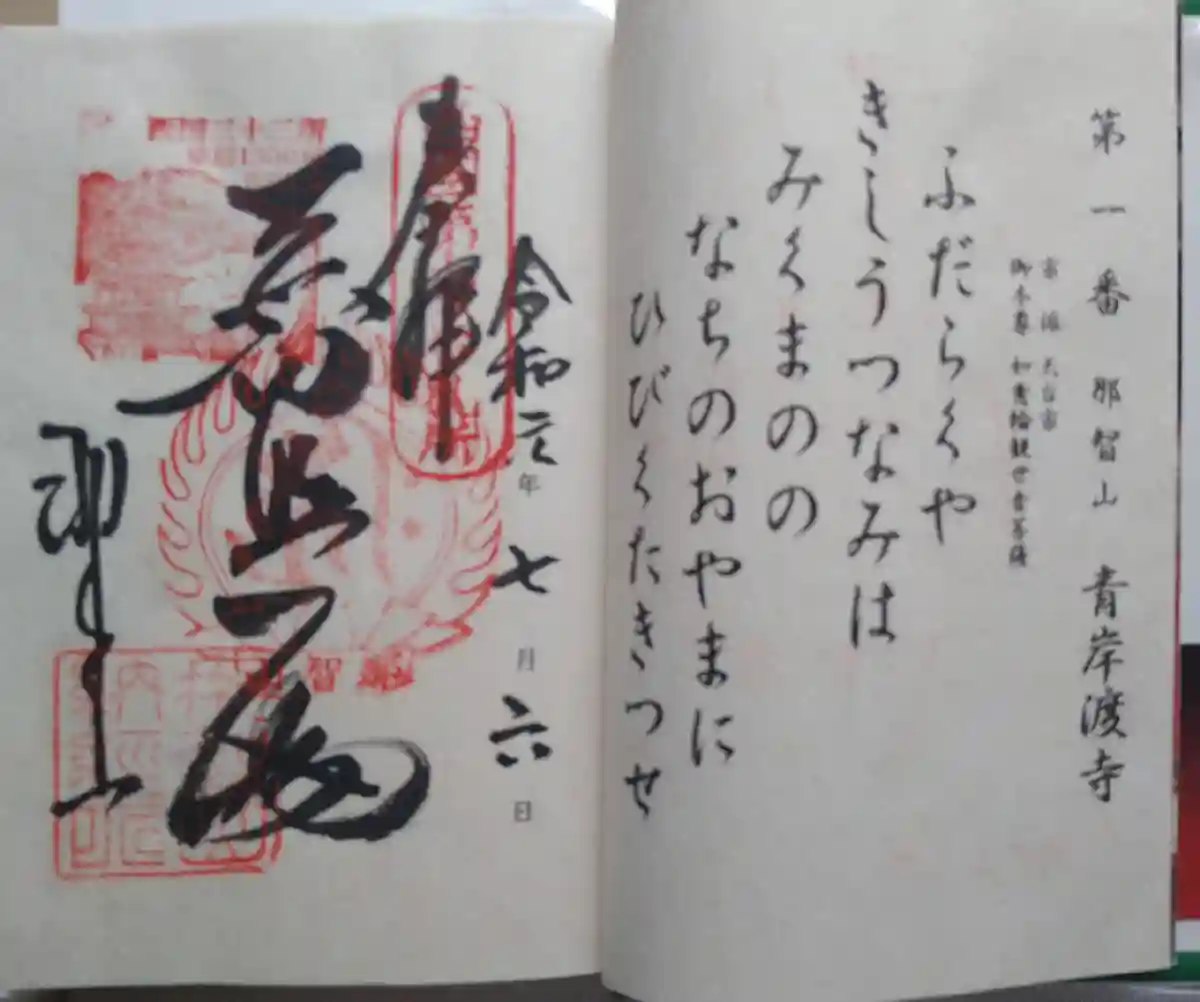 第一番 那智山 青岸渡寺
宗派 天台宗
御本尊 如意輪観世音菩薩
ふだらくや
きしうつなみは
みくまのの
なちのおやまに
ひびくたきつせ
令和元年七月六日
奉拝
普照殿
那智山